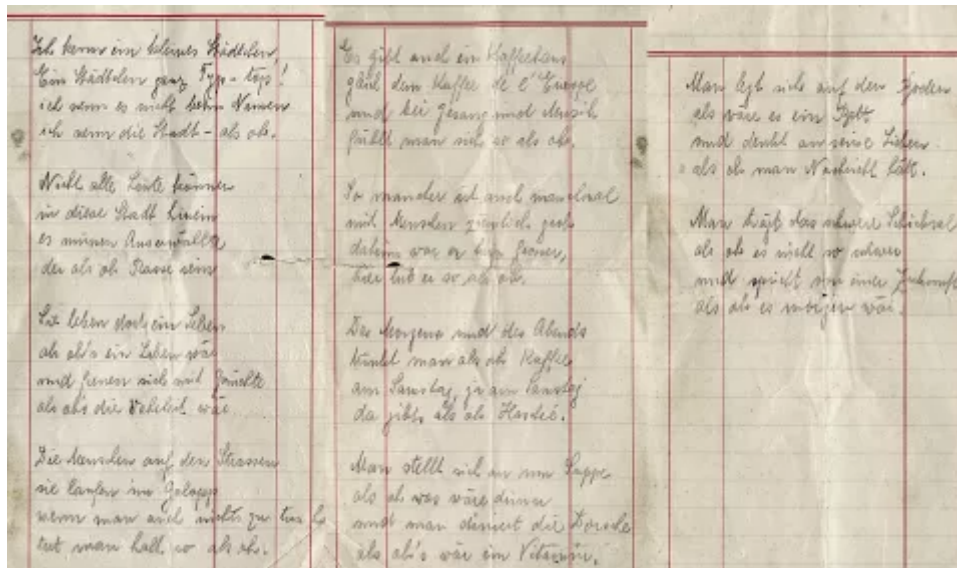 Ich kenn ein kleines Städtchen,
Ein Städtchen ganz Tipp-topp!
ich nenn es nicht beim Namen
ich nenn die Stadt - als ob.
Nicht alle Leute können
in diese Stadt hinein
es müssen Auserwählte
der als ob Rasse sein
Die leben dort ein Leben
als ob's ein Leben wär
und freuen sich mit Gerüchte
als obs die Wahrheit wär
Die Menschen auf den Strassen
sie laufen im Galopp
wenn man auch nichts zu tun
tut man halt so als ob.
Es gibt auch ein Kaffeehaus
gleich dem Kaffee de l'Europe
und bei Gesang und Musik
fühlt man sich so als ob.
So mancher ist auch manchmal
mit Menschen ziemlich grob
daheim war er kein Grosser,
hier tut er so als ob.
Des Morgens und des Abends
trinkt man als ob Kaffee
am Samstag, ja am Samstag
da gibts als ob Haché.
Man stellt sich an um Suppe
als ob was wäre drinnen
und man die Dorsche
als ob's wär ein Vitamin.
Man legt sich auf den Boden
als wäre es ein Bett
und denkt an seine Lieben
als ob man Nachricht hätt.
Man trägt das schwere Schicksal
als ob es nicht so schwer
und spricht von einer Zukunft
als ob es morgen wär.